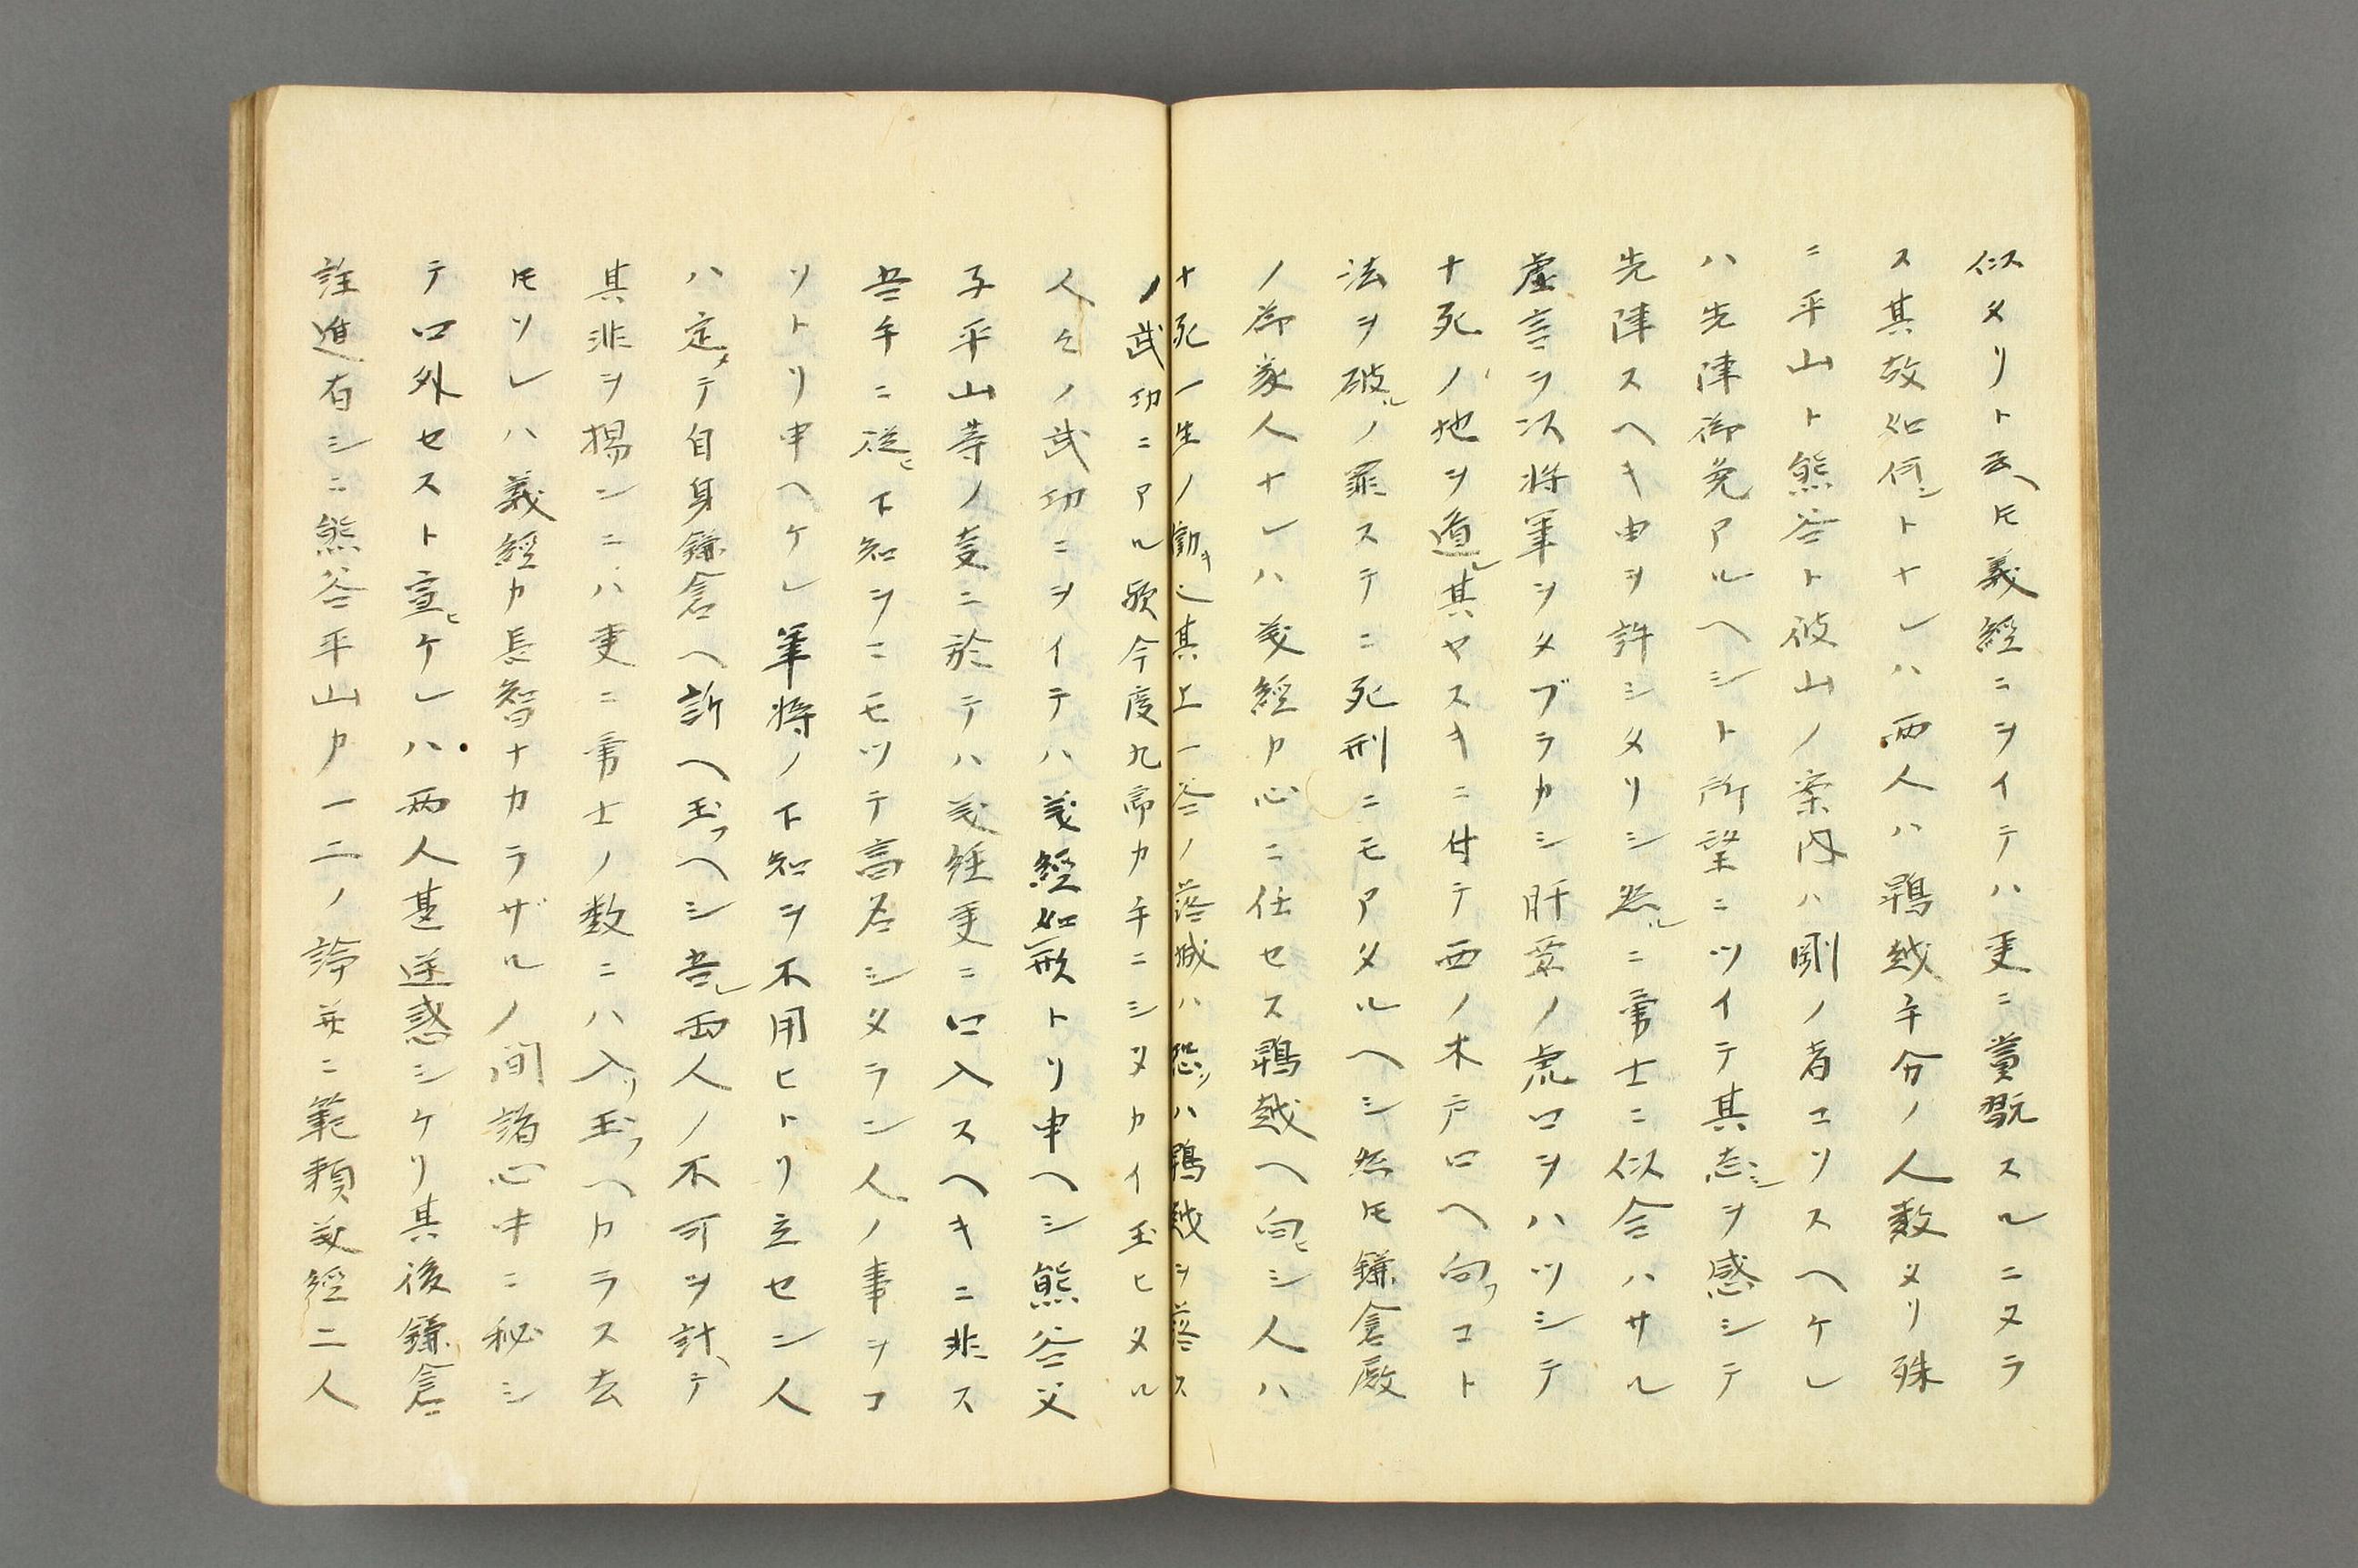 似タリト云ヘ𪜈義經ニヲイテハ更ニ賞翫スルニタラ
ス其故如何シトナレハ両人ハ鵯越手分ノ人数タリ殊
ニ平山ト熊谷ト彼山ノ案内ハ剛ノ者コリスヘケレ
ハ先陣御免アルヘシト所望ニツイテ其志シヲ感シテ
先陣スヘキ由ヲ許シタリシ然ルニ両士ニ似合ハサル
虚言ヲ以将軍ヲタブラカシ肝要ノ虎口ヲハツシテ
十死ノ地ヲ遁レ其ヤスキニ付テ西ノ木戸口ヘ向フコト
法ヲ破ルノ罪ステニ死刑ニモアタルヘシ然𪜈鎌倉殿
ノ御家人ナレハ義經カ心ニ任セス鵯越ヘ向ヒシ人ハ
十死一生ノ働キ也其上一谷ノ落城ハ恐ソハ鵯越ヲ落ス
ノ武功ニアル歟今度九郎カ手ニシタカイ玉ヒタル
人々ノ武功ニヲイテハ義經如形トリ申ヘシ熊谷父
子平山等ノ㕝ニ於テハ義経更ニ口入スヘキニ非ス
吾手ニ從ヒ下知シニモツテ高名シタラン人ノ事ヲコ
ソトリ申ヘケレ軍将ノ下知ヲ不用ヒトリ立セン人
ハ定メテ自身鎌倉ヘ訴ヘ玉フヘシ吾レ両人ノ不可ヲ計ヘテ
其非ヲ揚ンニハ更ニ両士ノ数ニハ入リ玉フヘカラス去
𪜈ソレハ義經カ長智ナカラザルノ間諸心中ニ秘シ
テ口外セスト宣ヒケレハ両人甚迷惑シケリ其後鎌倉
註進有シニ熊谷平山カ一二ノ諍并ニ範頼義經二人